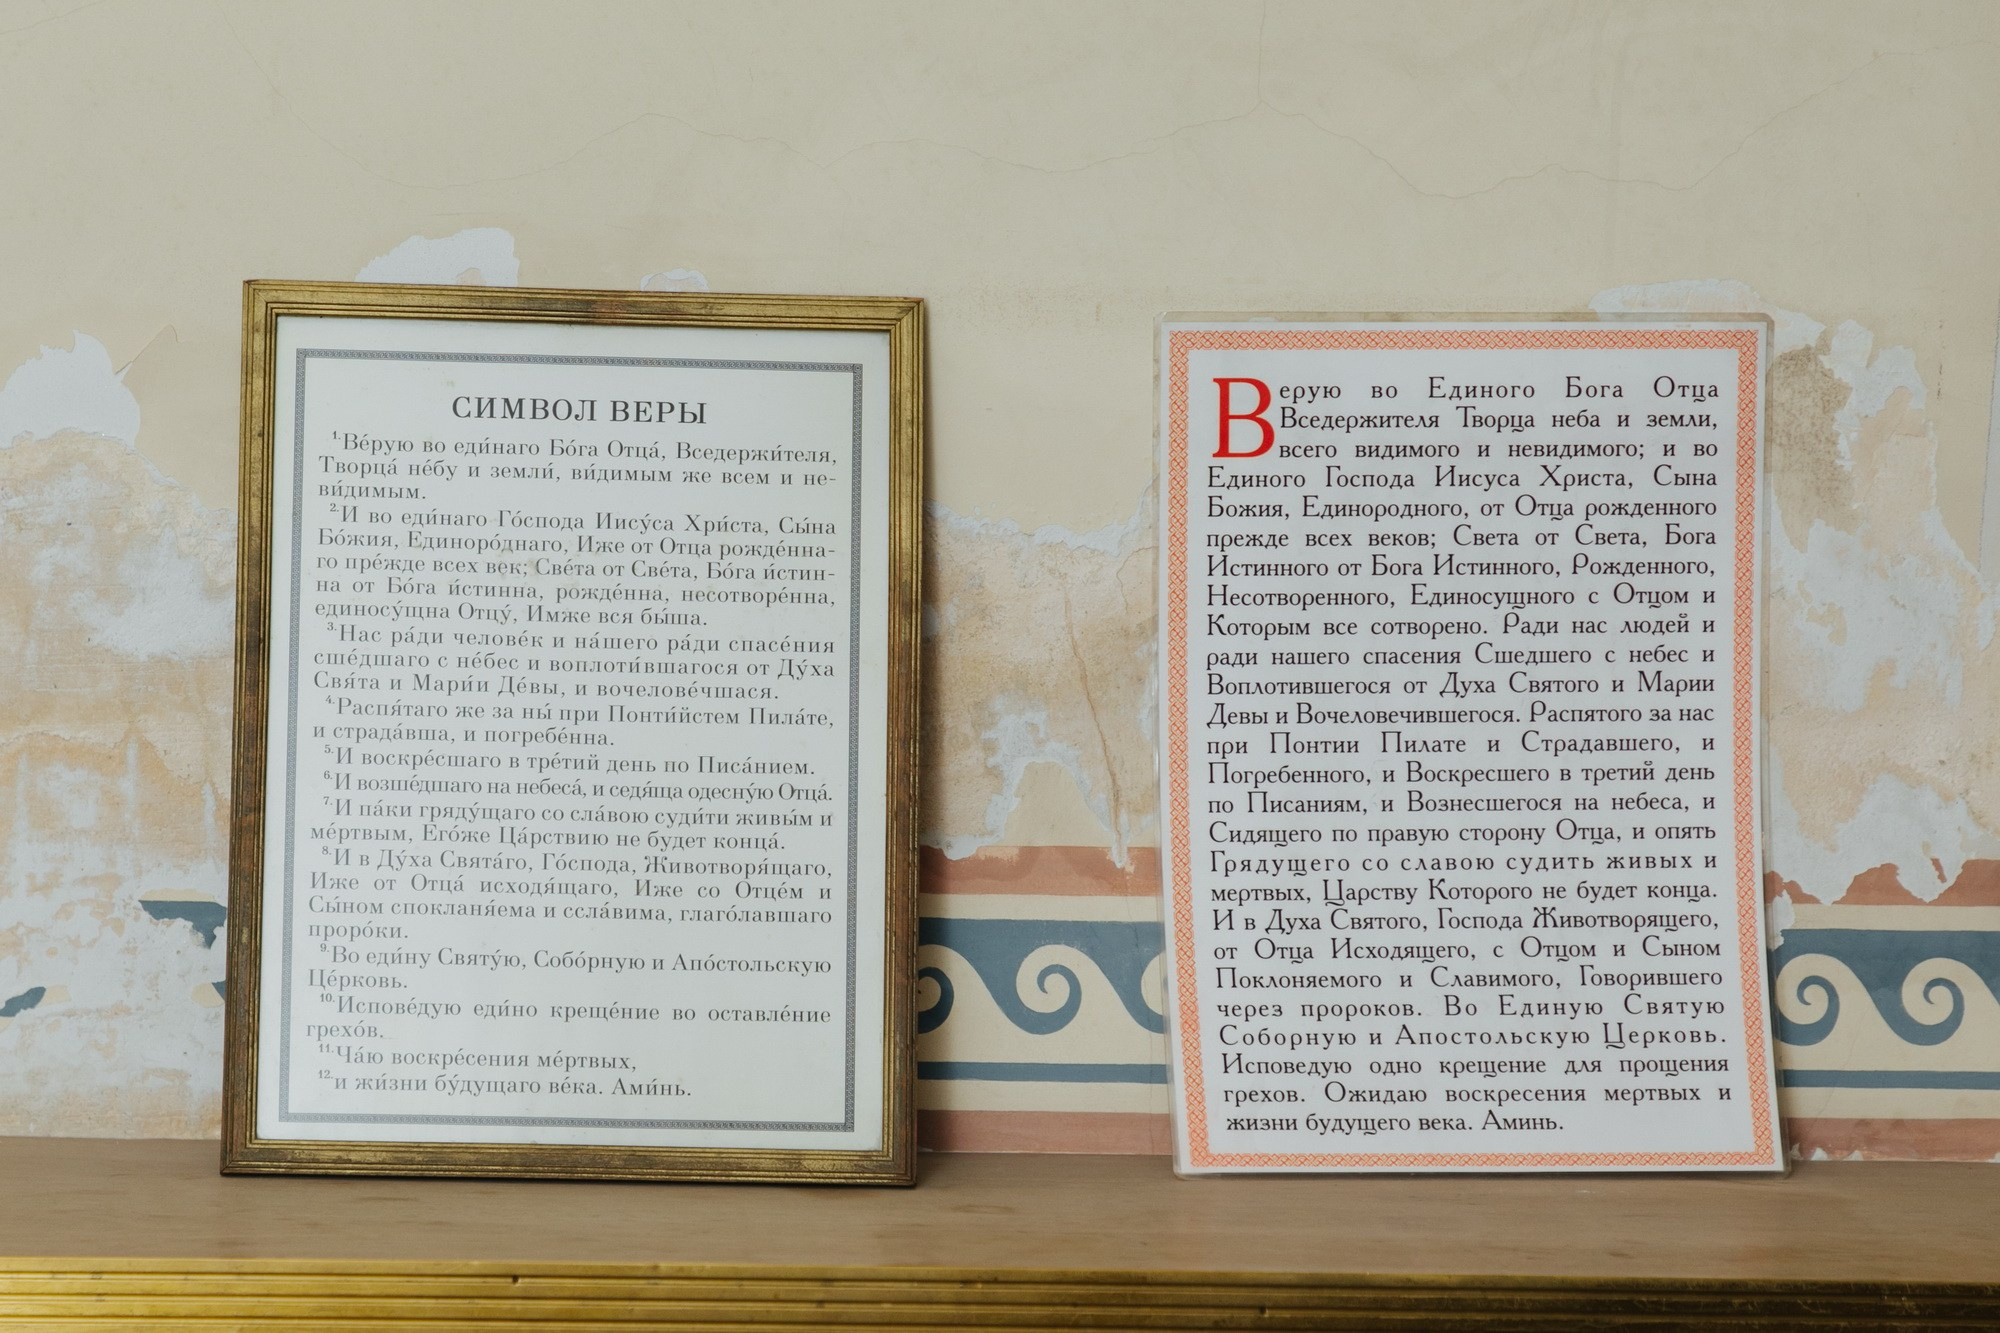 СИМВОЛ ВЕРЫ
1. Ве́рую во еди́наго Бо́га Отца́, Вседержи́теля,
Творца́ не́бу и земли́, ви́димым же всем и не-
ви́димым.
2. И во еди́наго Го́спода Иису́са Христа́, Сы́на
Бо́жия, Единоро́днаго, Иже от Отца рожде́нна-
го пре́жде всех век; Све́та от Све́та, Бо́га и́стин-
на от Бо́га и́стинна, рожде́нна, несотворе́нна,
единосу́щна Отцу́, Имже вся бы́ша.
3. Нас ра́ди челове́к и на́шего ра́ди спасе́ния
сше́дшаго с не́бес и воплоти́вшагося от Ду́ха
Свя́та и Мари́и Де́вы, и вочелове́чшася.
4. Распя́таго же за ны́ при Понти́йстем Пила́те,
и страда́вша, и погребе́нна.
5. И воскре́сшаго в тре́тий день по Писа́нием.
6. И возше́дшаго на небеса́, и седя́ща одесну́ю Отца́.
7. И па́ки гряду́щаго со сла́вою суди́ти живы́м и
ме́ртвым, Его́же Ца́рствию не будет конца́.
8. И в Ду́ха Свята́го, Го́спода, Животворя́щаго,
Иже от Отца́ исходя́щаго, Иже со Отце́м и
Сы́ном спокланя́ема и ссла́вима, глаго́лавшаго
проро́ки.
9. Во еди́ну Святу́ю, Собо́рную и Апо́стольскую
Це́рковь.
10. Испове́дую еди́но креще́ние во оставле́ние
грехо́в.
11. Ча́ю воскре́сения ме́ртвых,
12. и жи́зни бу́дущаго ве́ка. Ами́нь.
Верую во Единого Бога Отца
Вседержителя Творца неба и земли,
всего видимого и невидимого; и во
Единого Господа Иисуса Христа, Сына
Божия, Единородного, от Отца рожденного
прежде всех веков; Света от Света, Бога
Истинного от Бога Истинного, Рожденного,
Несотворенного, Единосущного с Отцом и
Которым все сотворено. Ради нас людей и
ради нашего спасения Сшедшего с небес и
Воплотившегося от Духа Святого и Марии
Девы и Вочеловечившегося. Распятого за нас
при Понтии Пилате и Страдавшего, и
Погребенного, и Воскресшего в третий день
по Писаниям, и Вознесшегося на небеса, и
Сидящего по правую сторону Отца, и опять
Грядущего со славою судить живых и
мертвых, Царству Которого не будет конца.
И в Духа Святого, Господа Животворящего,
от Отца Исходящего, с Отцом и Сыном
Поклоняемого и Славимого, Говорившего
через пророков. Во Единую Святую
Соборную и Апостольскую Церковь.
Исповедую одно крещение для прощения
грехов. Ожидаю воскресения мертвых и
жизни будущего века. Аминь.